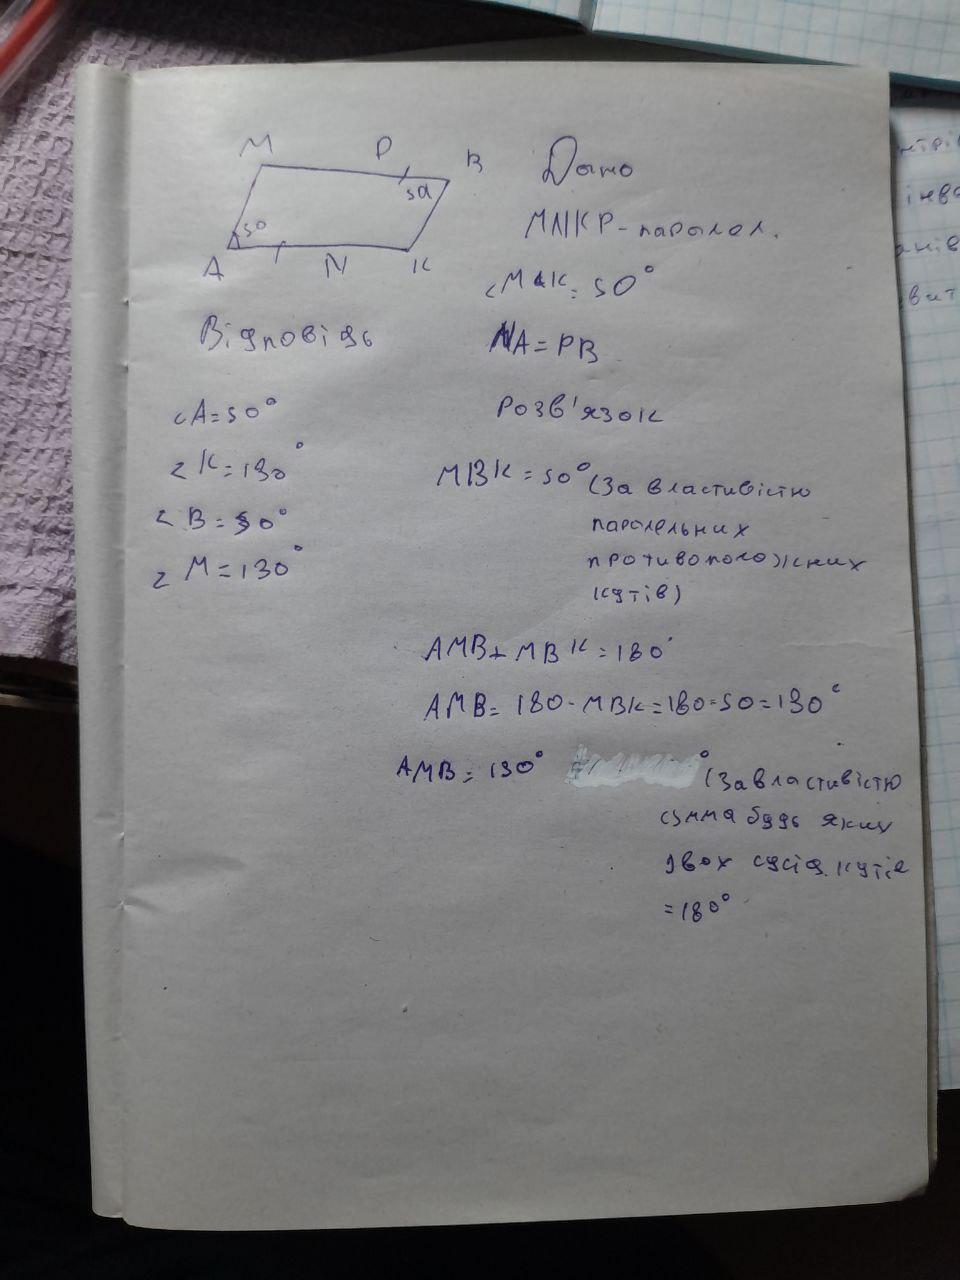 M P B
50
50
A N K
Дано
MNKP - паролел.
<MAK = 50°
NA = PB
Розв'язок
MBK = 50° (За властивістю
паролельних
противоположних
кутів)
AMB + MBK = 180°
AMB = 180 - MBK = 180 - 50 = 130°
AMB = 130° (За властивістю
сумма будь яких
двох сусід. кутів
= 180°
Відповідь
<A = 50°
<K = 130°
<B = 50°
<M = 130°